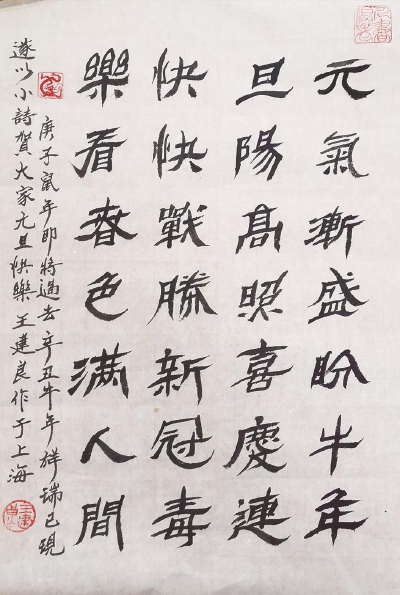 元氣漸盛盼牛年
旦陽高照喜慶連
快快戰勝新冠毒
樂看春色滿人間
庚子鼠年即將過去辛丑牛年祥瑞已現
遂以小詩賀大家元旦快樂王建良作于上海